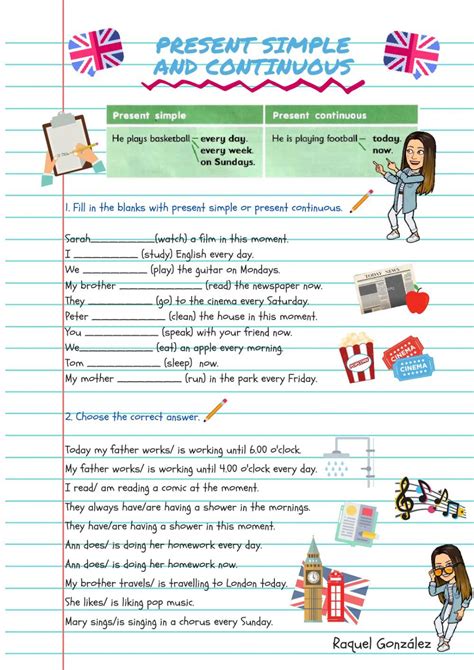 PRESENT SIMPLE
AND CONTINUOUS
Present simple
Present continuous
He plays basketball – every day.
every week.
on Sundays.
He is playing football – today.
now.
1. Fill in the blanks with present simple or present continuous.
Sarah______________(watch) a film in this moment.
I ______________ (study) English every day.
We ______________ (play) the guitar on Mondays.
My brother ______________ (read) the newspaper now.
They ______________ (go) to the cinema every Saturday.
Peter ______________ (clean) the house in this moment.
You ______________ (speak) with your friend now.
We______________ (eat) an apple every morning.
Tom ______________ (sleep) now.
My mother ______________ (run) in the park every Friday.
TODAY NEWS
POPCORN
CINEMA
CINEMA
2. Choose the correct answer.
Today my father works/ is working until 6.00 o'clock.
My father works/ is working until 4.00 o'clock every day.
I read/ am reading a comic at the moment.
They always have/are having a shower in the mornings.
They have/are having a shower in this moment.
Ann does/ is doing her homework every day.
Ann does/ is doing her homework now.
My brother travels/ is travelling to London today.
She likes/ is liking pop music.
Mary sings/is singing in a chorus every Sunday.
Raquel González